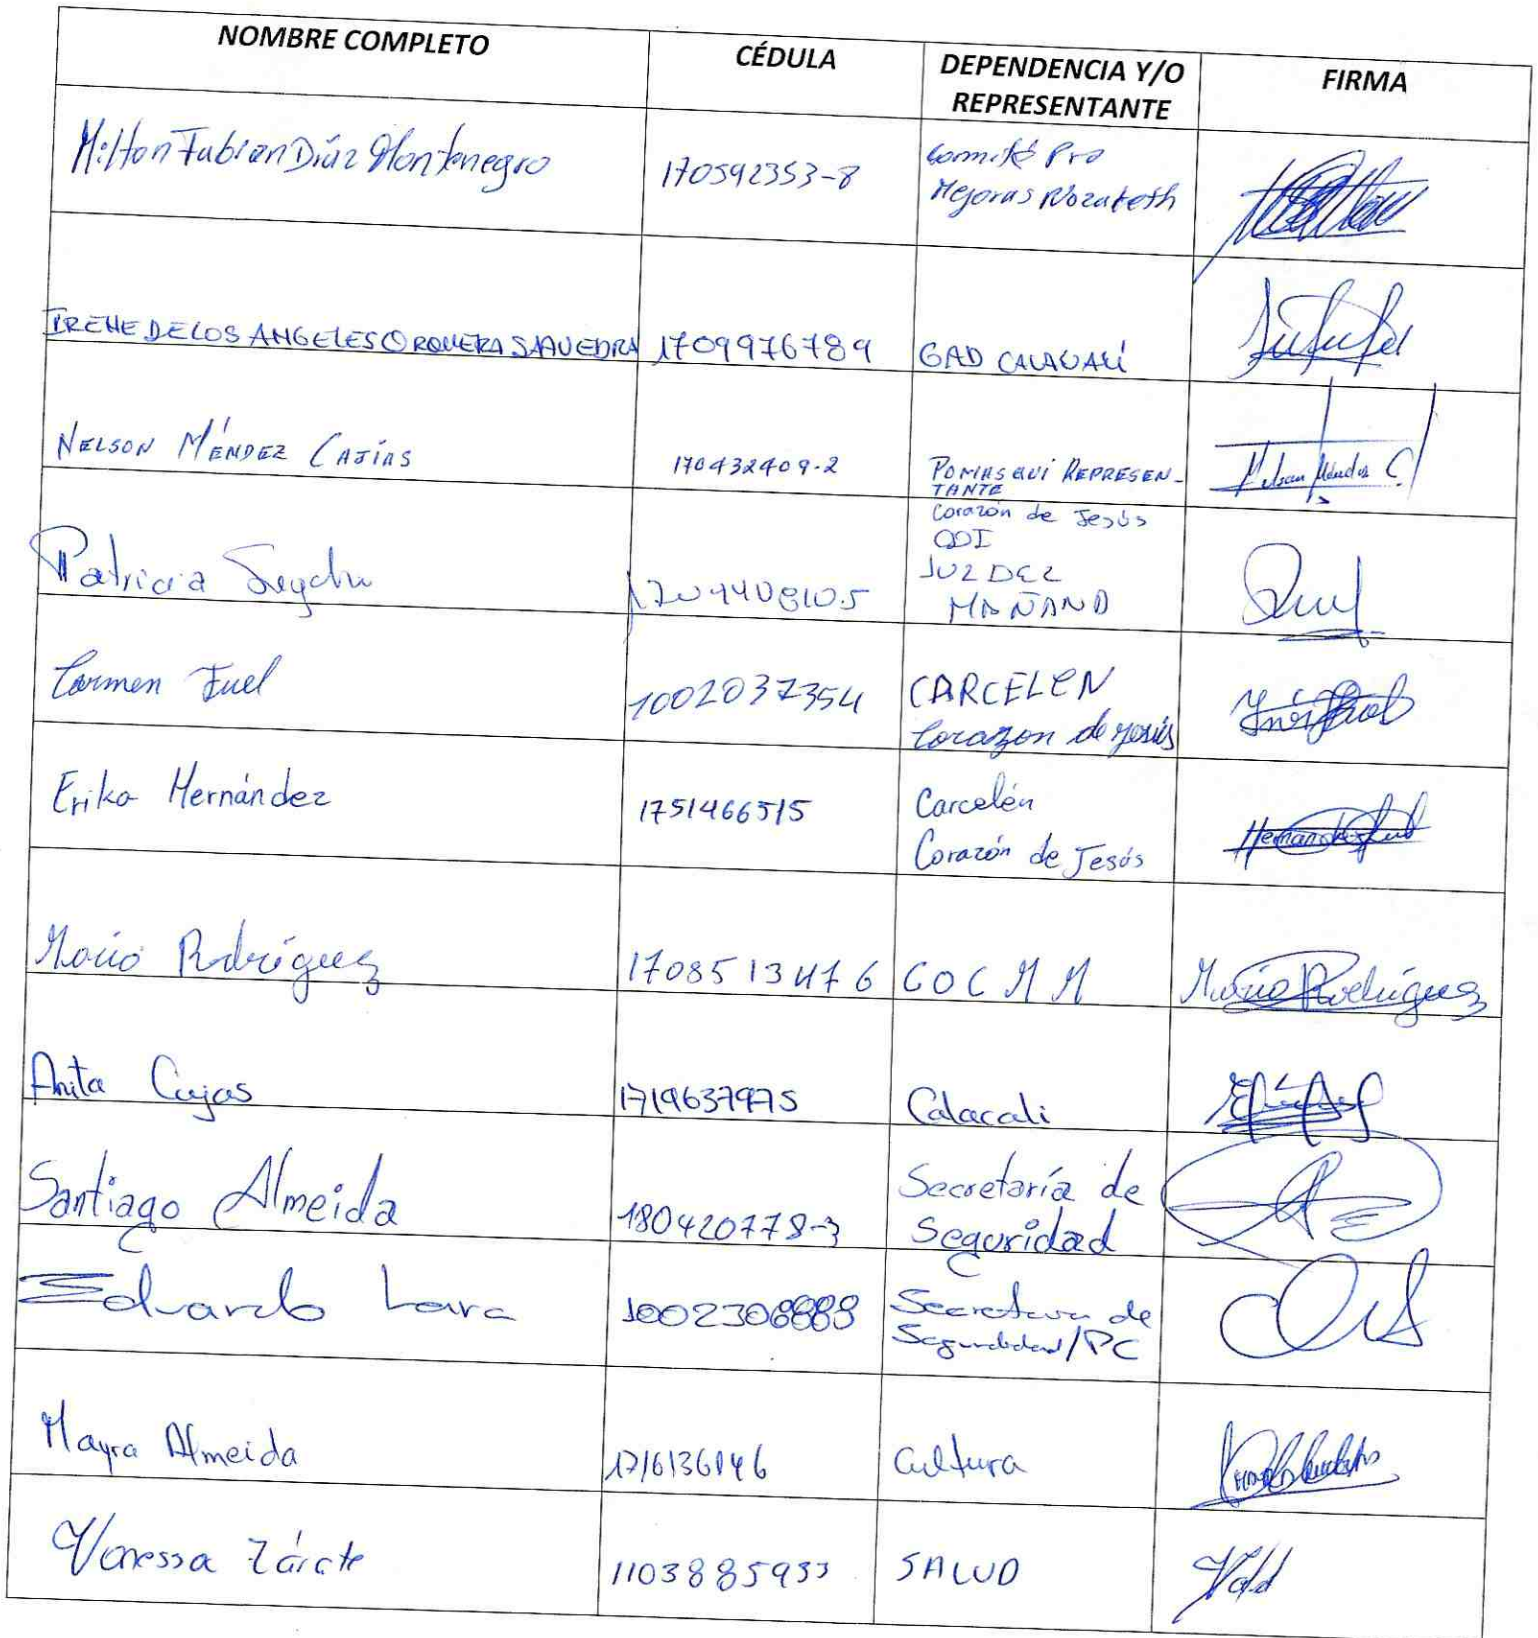 NOMBRE COMPLETO CÉDULA DEPENDENCIA Y/O REPRESENTANTE FIRMA
Milton Fabian Díaz Montenegro 170592353-8 Comité Pro
Mejoras Nazareth
IRENE DE LOS ANGELES ORQUERA SAAVEDRA 1709976789 GAD CALACALÍ
NELSON MÉNDEZ CAJÍAS 170432409-2 POMASQUI REPRESEN-
TANTE
Nelson Méndez C.
Patricia Corazón de Jesús
JUZ DEL
MAÑANA
Carmen Fuel 1002037354 CARCELEN
Corazon de Jesús
Erika Hernández 1751466515 Carcelén
Corazón de Jesús
Hernandez
Mario Rodríguez 1708513476 COCMM Mario Rodríguez
Anita Cajas 1719637975 Calacali
Santiago Almeida 180420778-3 Secretaría de
Seguridad
Eduardo Lara Secretaria de
Seguridad/PC
Mayra Almeida Cultura
Vanessa Zárate 1103885933 SALUD